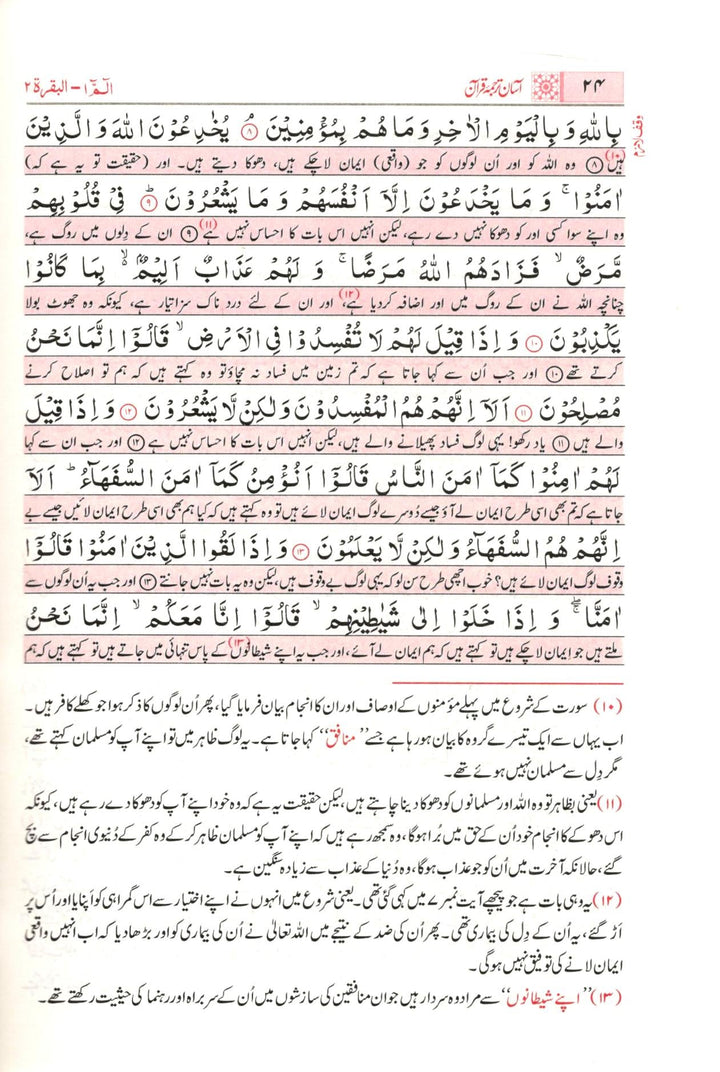 ۲۴ آسان ترجمۂ قرآن الٓمّٓ ۱ – البقرة ۲
وقف لازم
بِاللّٰهِ وَ بِالْيَوْمِ الْاٰخِرِ وَمَا هُمْ بِمُؤْمِنِيْنَ ۘ ﴿۸﴾ يُخٰدِعُوْنَ اللّٰهَ وَالَّذِيْنَ
ہیں (۱۰) ﴿۸﴾ وہ اللہ کو اور اُن لوگوں کو جو (واقعی) ایمان لاچکے ہیں، دھوکا دیتے ہیں۔ اور (حقیقت تو یہ ہے کہ)
اٰمَنُوْا ۚ وَ مَا يَخْدَعُوْنَ اِلَّاۤ اَنْفُسَهُمْ وَ مَا يَشْعُرُوْنَ ؕ ﴿۹﴾ فِيْ قُلُوْبِهِمْ
وہ اپنے سوا کسی اور کو دھوکا نہیں دے رہے، لیکن انہیں اس بات کا احساس نہیں ہے (۱۱) ﴿۹﴾ ان کے دِلوں میں روگ ہے،
مَّرَضٌ ۙ فَزَادَهُمُ اللّٰهُ مَرَضًا ۚ وَ لَهُمْ عَذَابٌ اَلِيْمٌۢ ۙ بِمَا كَانُوْا
چنانچہ اللہ نے ان کے روگ میں اور اضافہ کردیا ہے، (۱۲) اور ان کے لئے درد ناک سزا تیار ہے، کیونکہ وہ جھوٹ بولا
يَكْذِبُوْنَ ﴿۱۰﴾ وَ اِذَا قِيْلَ لَهُمْ لَا تُفْسِدُوْا فِي الْاَرْضِ ۙ قَالُوْۤا اِنَّمَا نَحْنُ
کرتے تھے ﴿۱۰﴾ اور جب اُن سے کہا جاتا ہے کہ تم زمین میں فساد نہ مچاؤ تو وہ کہتے ہیں کہ ہم تو اصلاح کرنے
مُصْلِحُوْنَ ﴿۱۱﴾ اَلَاۤ اِنَّهُمْ هُمُ الْمُفْسِدُوْنَ وَلٰكِنْ لَّا يَشْعُرُوْنَ ﴿۱۲﴾ وَ اِذَا قِيْلَ
والے ہیں ﴿۱۱﴾ یاد رکھو! یہی لوگ فساد پھیلانے والے ہیں، لیکن انہیں اس بات کا احساس نہیں ہے ﴿۱۲﴾ اور جب ان سے کہا
لَهُمْ اٰمِنُوْا كَمَاۤ اٰمَنَ النَّاسُ قَالُوْۤا اَنُؤْمِنُ كَمَاۤ اٰمَنَ السُّفَهَآءُ ؕ اَلَاۤ
جاتا ہے کہ تم بھی اسی طرح ایمان لے آؤ جیسے دُوسرے لوگ ایمان لائے ہیں تو وہ کہتے ہیں کہ کیا ہم بھی اسی طرح ایمان لائیں جیسے بے
اِنَّهُمْ هُمُ السُّفَهَآءُ وَلٰكِنْ لَّا يَعْلَمُوْنَ ﴿۱۳﴾ وَ اِذَا لَقُوا الَّذِيْنَ اٰمَنُوْا قَالُوْۤا
وقوف لوگ ایمان لائے ہیں؟ خوب اچھی طرح سن لو کہ یہی لوگ بے وقوف ہیں، لیکن وہ یہ بات نہیں جانتے ﴿۱۳﴾ اور جب یہ اُن لوگوں سے
اٰمَنَّا ۖۚ وَ اِذَا خَلَوْا اِلٰى شَيٰطِيْنِهِمْ ۙ قَالُوْۤا اِنَّا مَعَكُمْ ۙ اِنَّمَا نَحْنُ
ملتے ہیں جو ایمان لاچکے ہیں تو کہتے ہیں کہ ہم ایمان لے آئے، اور جب یہ اپنے شیطانوں (۱۳) کے پاس تنہائی میں جاتے ہیں تو کہتے ہیں کہ ہم
(۱۰) سورت کے شروع میں پہلے مؤمنوں کے اوصاف اور ان کا انجام بیان فرمایا گیا، پھر اُن لوگوں کا ذکر ہوا جو کھلے کافر ہیں۔
اب یہاں سے ایک تیسرے گروہ کا بیان ہورہا ہے جسے ”منافق“ کہا جاتا ہے۔ یہ لوگ ظاہر میں تو اپنے آپ کو مسلمان کہتے تھے،
مگر دِل سے مسلمان نہیں ہوئے تھے۔
(۱۱) یعنی بظاہر تو وہ اللہ اور مسلمانوں کو دھوکا دینا چاہتے ہیں، لیکن حقیقت یہ ہے کہ وہ خود اپنے آپ کو دھوکا دے رہے ہیں، کیونکہ
اس دھوکے کا انجام خود اُن کے حق میں بُرا ہوگا، وہ سمجھ رہے ہیں کہ اپنے آپ کو مسلمان ظاہر کرکے وہ کفر کے دُنیوی انجام سے بچ
گئے، حالانکہ آخرت میں اُن کو جو عذاب ہوگا، وہ دُنیا کے عذاب سے زیادہ سنگین ہے۔
(۱۲) یہ وہی بات ہے جو پیچھے آیت نمبر ۷ میں کہی گئی تھی۔ یعنی شروع میں انہوں نے اپنے اختیار سے اس گمراہی کو اَپنایا اور اُس پر
اَڑ گئے، یہ اُن کے دِل کی بیماری تھی۔ پھر اُن کی ضد کے نتیجے میں اللہ تعالیٰ نے اُن کی بیماری کو اور بڑھا دیا کہ اب انہیں واقعی
ایمان لانے کی توفیق نہیں ہوگی۔
(۱۳) ”اپنے شیطانوں“ سے مراد وہ سردار ہیں جو ان منافقین کی سازشوں میں اُن کے سربراہ اور رہنما کی حیثیت رکھتے تھے۔